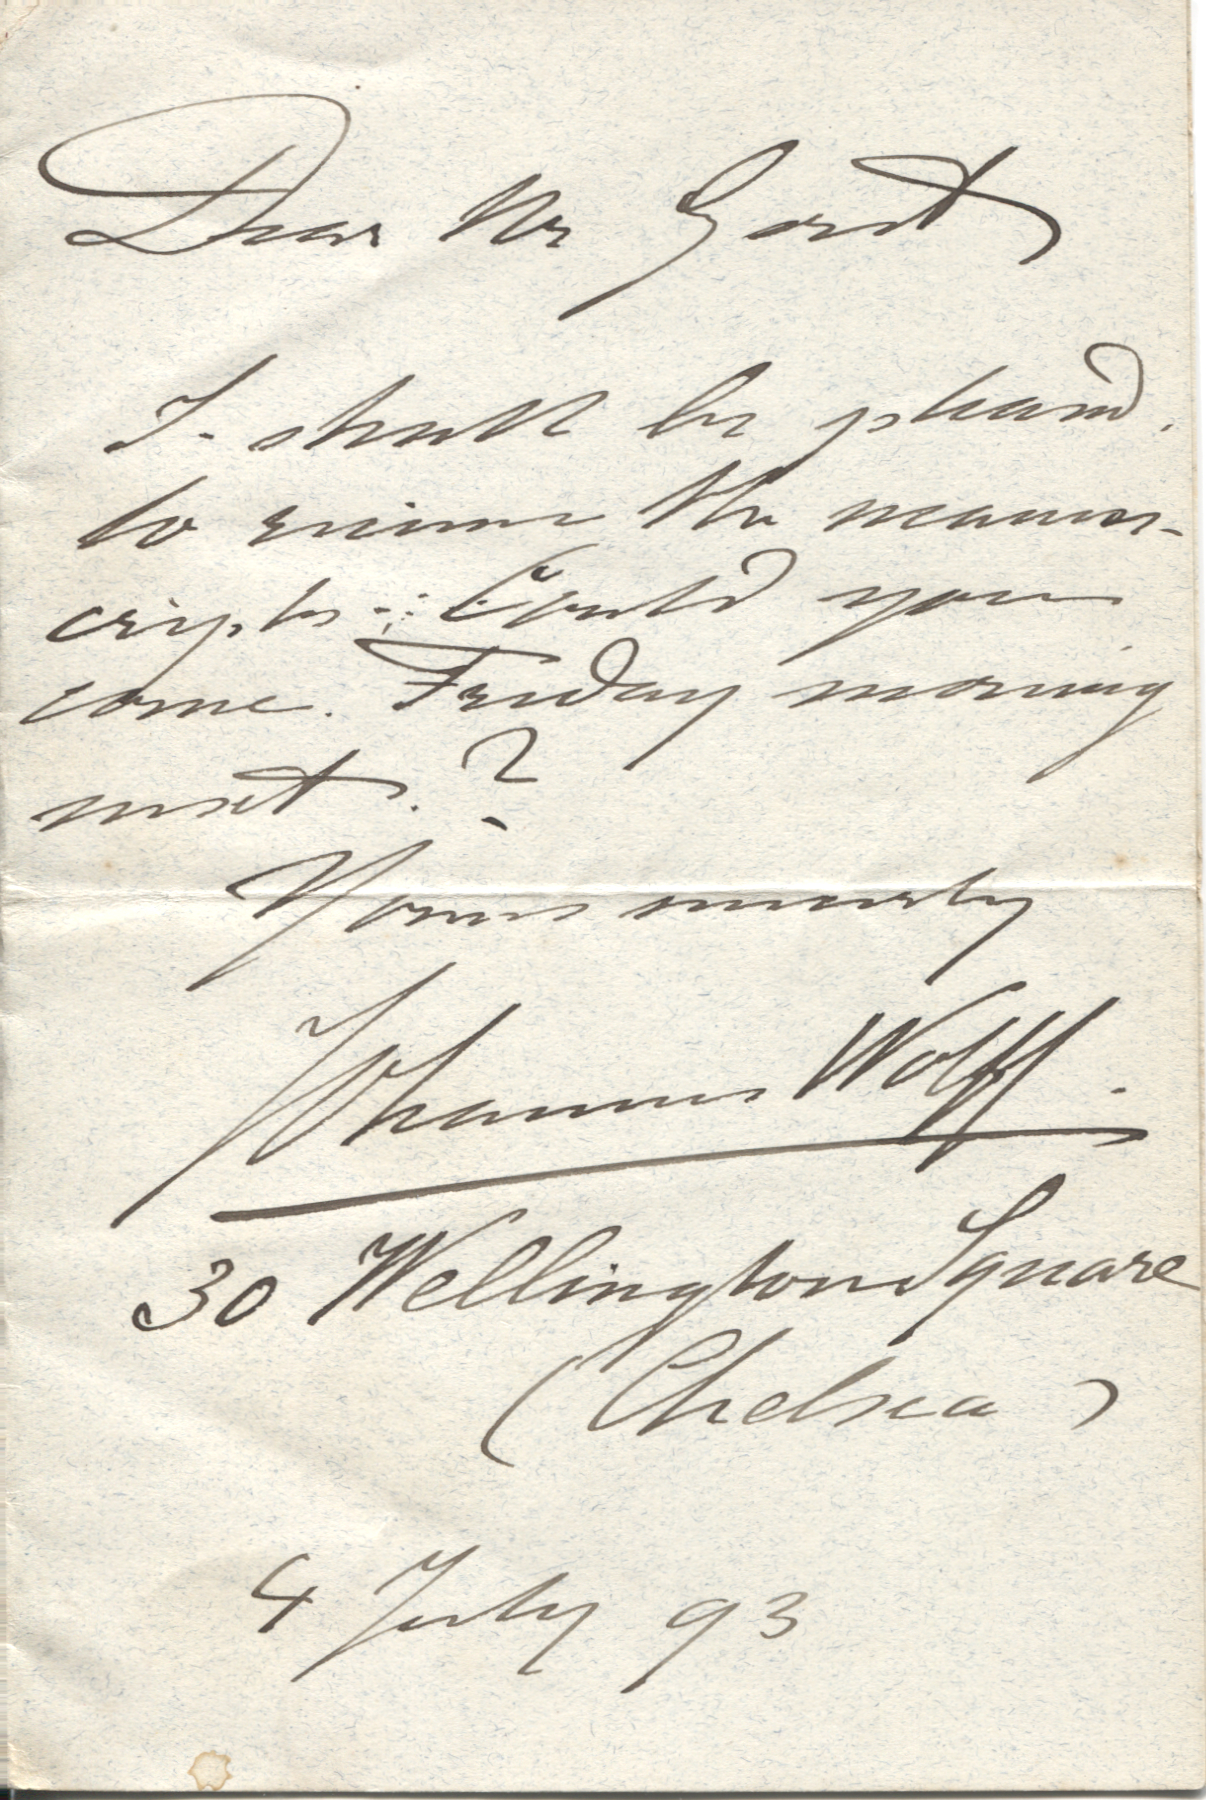 Dear Mr Gorst
I shall be pleased
to receive the manus-
cripts. Could you
come Friday morning
next?
Yours sincerely
Johannes Wolff.
30 Wellington Square
(Chelsea)
4 July 93